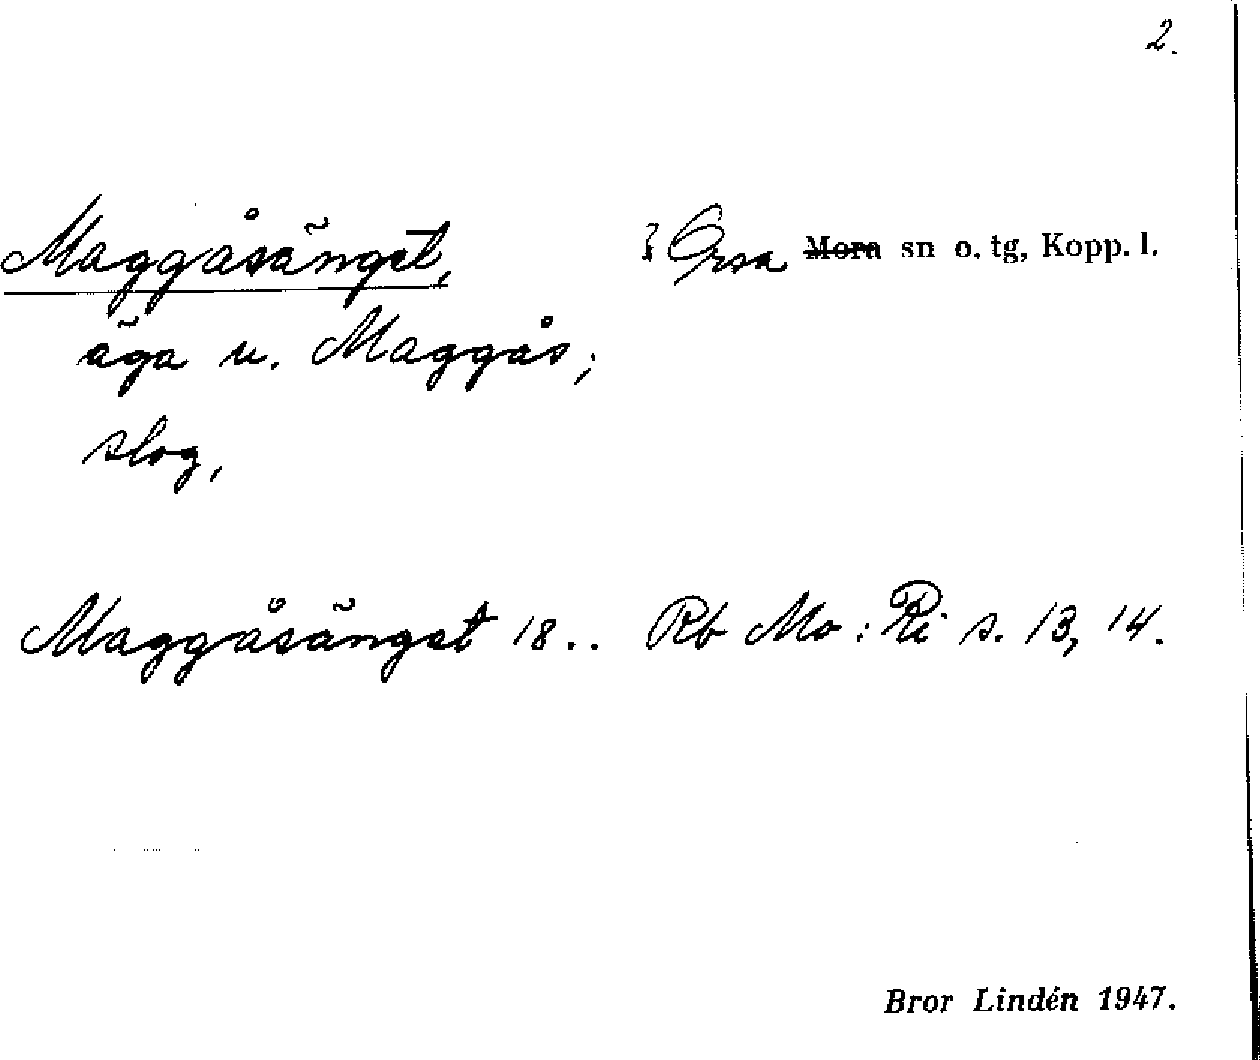 2.
Maggåsänget, Orsa Mora sn o. tg, Kopp. l.
äga u. Maggås;
slog,
Maggåsänget 18.. Rb Mo: Ri s. 13, 14.
Bror Lindén 1947.